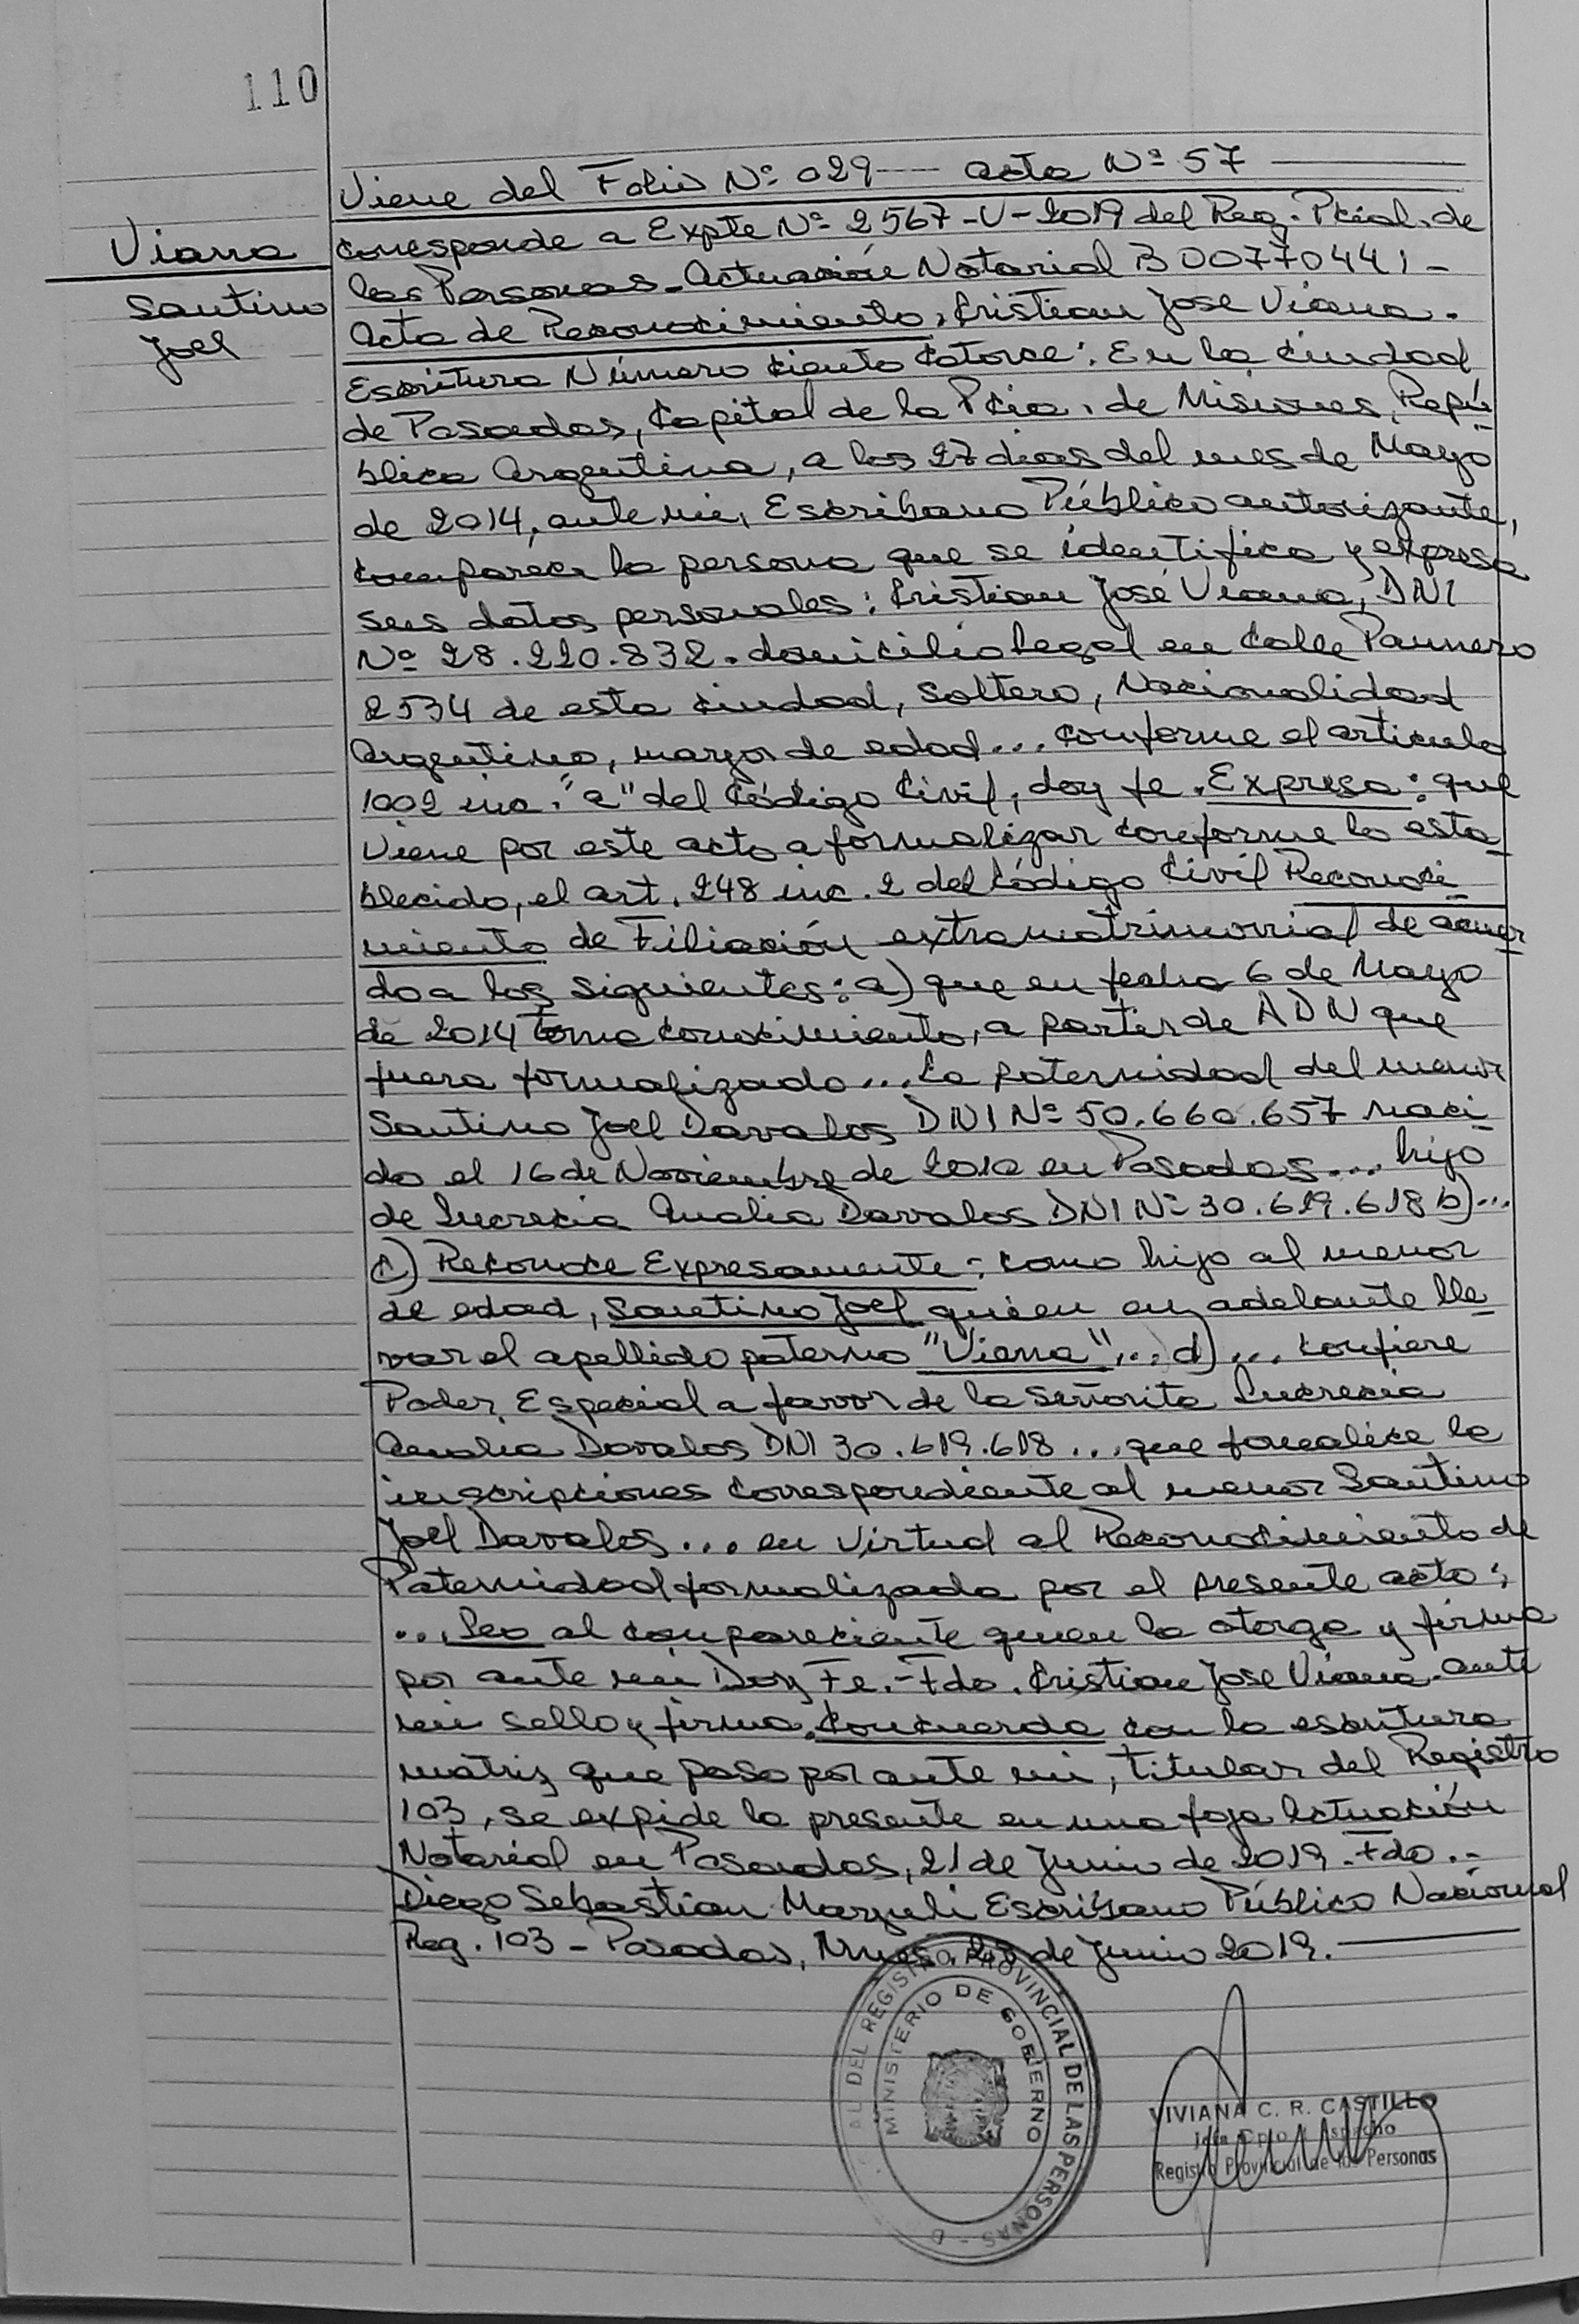 110
Viene del Folio Nº 029 --- acta Nº 57
Viana
Santino
Joel
corresponde a Expte Nº 2567-V-2019 del Reg. Pcial. de
las Personas - Actuación Notarial B 00770441 -
Acta de Reconocimiento, Cristian Jose Viana.
Escritura Número ciento catorce: En la ciudad
de Posadas, Capital de la Pcia. de Misiones, Repú-
blica Argentina, a los 27 dias del mes de Mayo
de 2014, ante mi, Escribano Público autorizante,
comparece la persona que se identifica y expresa
sus datos personales: Cristian José Viana, DNI
Nº 28.220.832. domicilio legal en Calle Paunero
2534 de esta ciudad, Soltero, Nacionalidad
Argentino, mayor de edad... conforme el articulo
1002 inc. "a" del Código Civil, doy fe. Expresa: que
viene por este acto a formalizar conforme lo esta-
blecido, el art. 248 inc. 2 del Código Civil Reconoci-
miento de Filiación extramatrimonial de acuer
do a los siguientes: a) que en fecha 6 de Mayo
de 2014 toma conocimiento, a partir de ADN que
fuera formalizado... La paternidad del menor
Santino Joel Davalos DNI Nº 50.660.657 naci-
do el 16 de Noviembre de 2010 en Posadas... hijo
de Lucrecia Analia Davalos DNI Nº 30.619.618 b)...
c) Reconoce Expresamente: como hijo al menor
de edad, Santino Joel quien en adelante lle-
var el apellido paterno "Viana"... d)... confiere
Poder Especial a favor de la Señorita Lucrecia
Analia Davalos DNI 30.619.618... que formalice la
inscripciones correspondiente al menor Santino
Joel Davalos... en virtud al Reconocimiento de
Paternidad formalizada por el presente acto;
... Leo al compareciente quien la otorga y firma
por ante mi Doy Fe.- Fdo. Cristian Jose Viana - ante
mi sello y firma. Concuerda con la escritura
matriz que paso por ante mi, titular del Registro
103, se expide la presente en una foja Actuación
Notarial en Posadas, 21 de Junio de 2019. Fdo.-
Diego Sebastian Maryuli Escribano Público Nacional
Reg. 103 - Posadas, Mnes, 28 de Junio 2019.
DEL REGISTRO PROVINCIAL DE LAS PERSONAS
MINISTERIO DE GOBIERNO
VIVIANA C. R. CASTILLO
Registro Provincial de las Personas